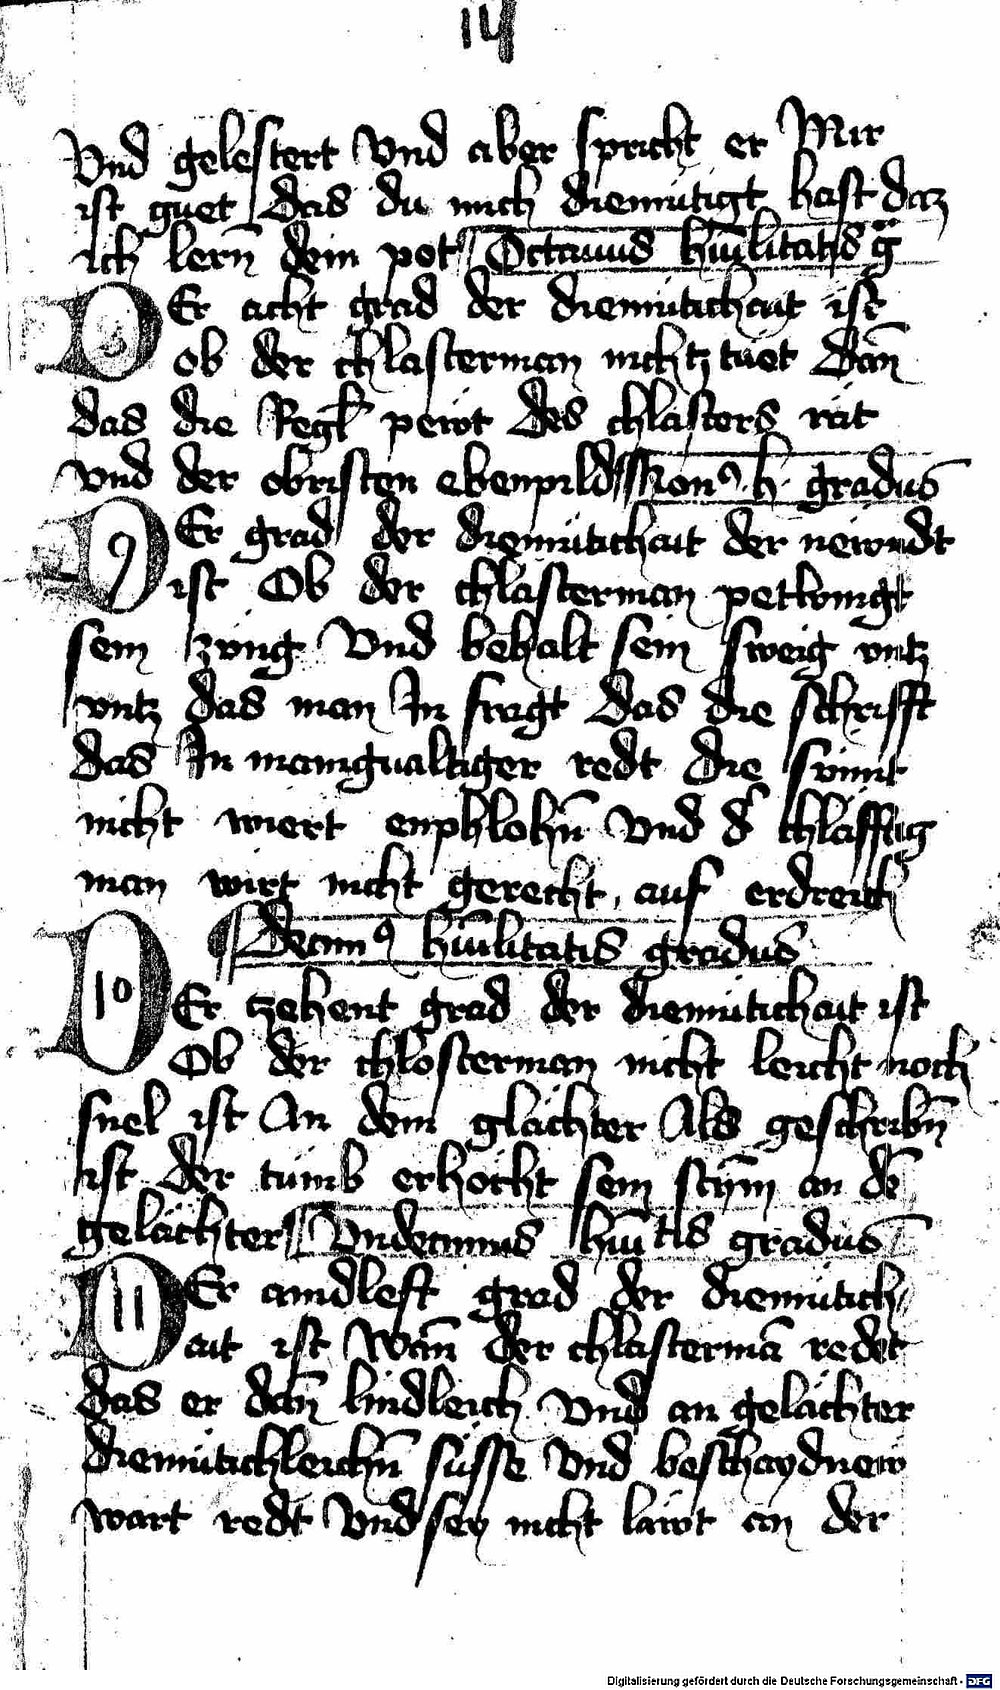 14
Vnd gelestert Vnd aber spricht er Mir
ist guet Das du mich diemütigt hast daz
ich lern̄ dein pot Octauus hūilitatis g̈
DEr acht grad der diemütichait ist
ob der chlasterman nichtz tuet Dan̄
das die Regl̄ pewt des chlasters rät
vnd der obristen ebenpild Nonꝰ h gradus
9
DEr grad der diemütichait der newndt
ist Ob der chlasterman petbingt
sein zung Vnd behalt sein sweig vntz
vntz das man In fragt Das die schrifft
das In manigualtiger redt die sünnt
nicht wiert enphlohn̄ Vnd d̄ chläffig
man wirt nicht gerecht auf erdreich
Decimꝰ hūilitatis gradus
10
DEr zehent grad der diemütichait ist
Ob der chlosterman nicht leicht noch
snel ist An dem glächter Als geschribn̄
ist Der tumb erhöcht sein stȳm an dē
gelächter Vndecimus hūitis gradus
11
DEr aindleft grad der diemütich
ait ist Wan̄ der chlastermā redet
das er dan̄ lindleich Vnd an gelächter
diemütichleichn̄ süsse Vnd beschaydnew
wart redt Vnd sey nicht läwt an der
Digitalisierung gefördert durch die Deutsche Forschungsgemeinschaft - DFG